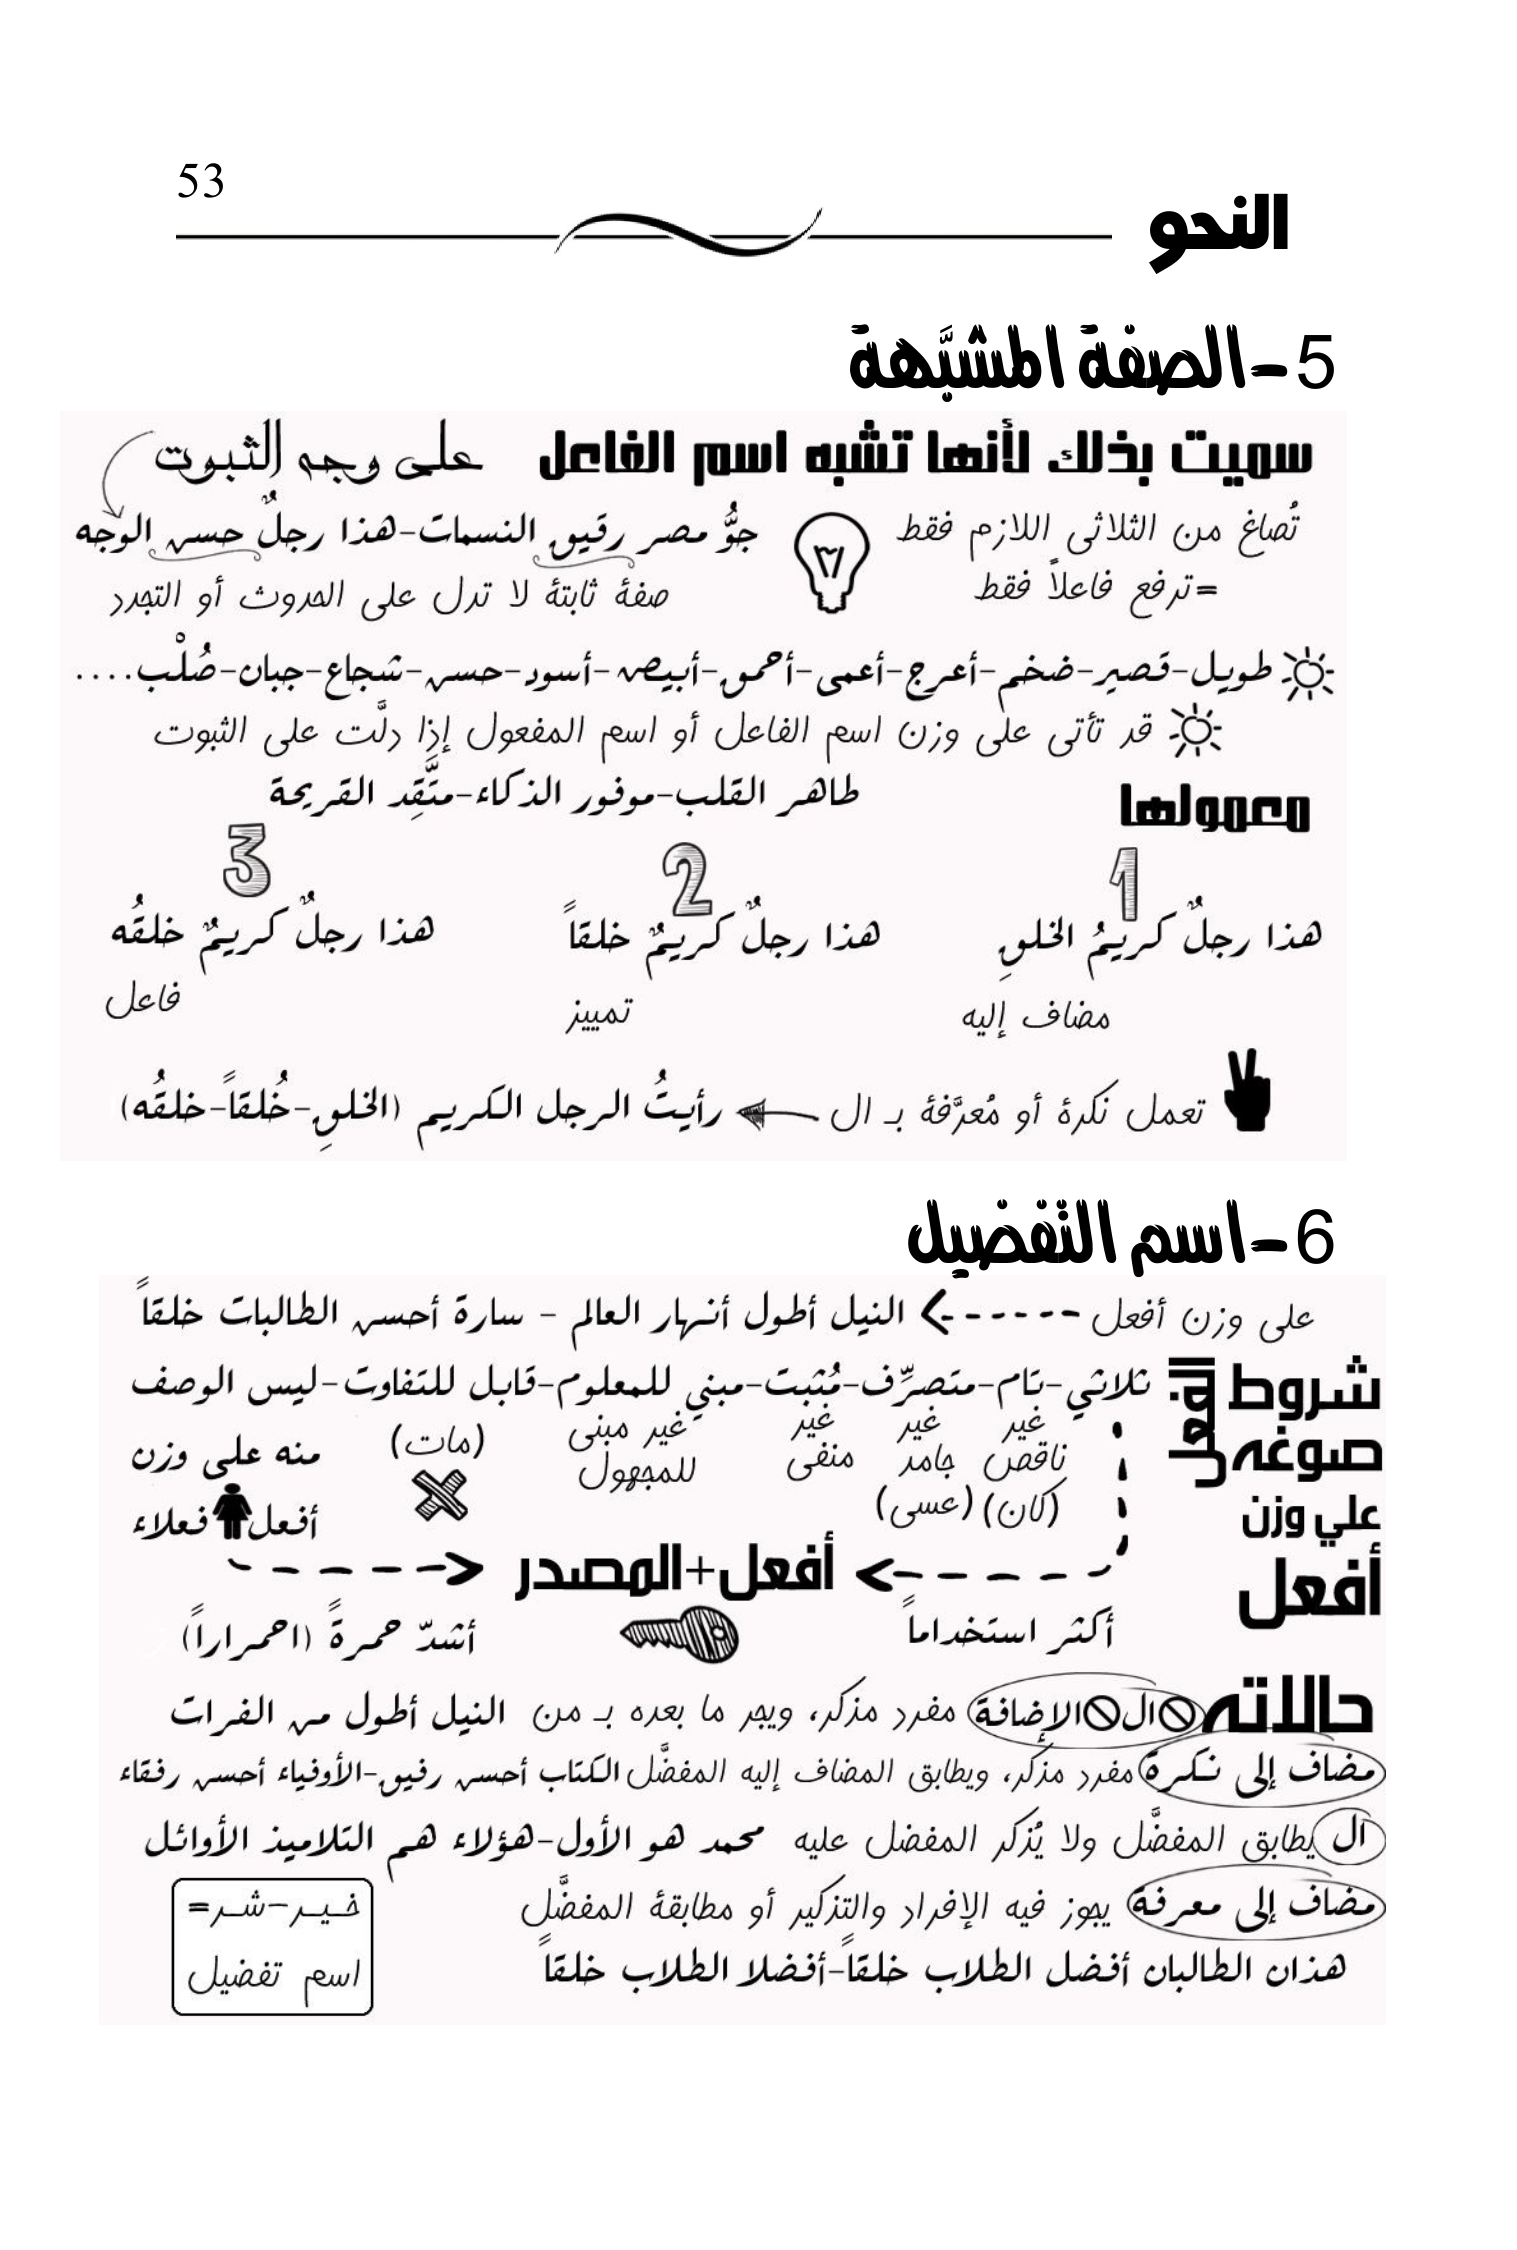 53
النحو
5-الصفة المشبَّهة
سميت بذلك لأنها تشبه اسم الفاعل على وجه الثبوت
تُصاغ من الثلاثى اللازم فقط جوُّ مصر رقيق النسمات-هذا رجلٌ حسن الوجه
=ترفع فاعلاً فقط صفة ثابتة لا تدل على الحدوث أو التجدد
طويل-قصير-ضخم-أعرج-أعمى-أحمق-أبيض-أسود-حسن-شجاع-جبان-صُلْب....
قد تأتى على وزن اسم الفاعل أو اسم المفعول إذا دلَّت على الثبوت
طاهر القلب-موفور الذكاء-متَّقِد القريحة
معمولها
1 2 3
هذا رجلٌ كريمُ الخلقِ هذا رجلٌ كريمٌ خلقاً هذا رجلٌ كريمٌ خلقُه
مضاف إليه تمييز فاعل
تعمل نكرة أو مُعرَّفة بـ ال رأيتُ الرجل الكريم (الخلقِ-خُلقاً-خلقُه)
6-اسم التفضيل
على وزن أفعل النيل أطول أنهار العالم - سارة أحسن الطالبات خلقاً
شروط الفعل ثلاثي-تام-متصرِّف-مُثبت-مبني للمعلوم-قابل للتفاوت-ليس الوصف
صوغه غير غير غير غير مبنى (مات) منه على وزن
ناقص جامد منفى للمجهول
علي وزن (كان) (عسى) أفعل فعلاء
أفعل أفعل+المصدر
أكثر استخداماً أشدّ حمرةً (احمراراً)
حالاته ال الإضافة مفرد مذكر، ويجر ما بعده بـ من النيل أطول من الفرات
مضاف إلى نكرة مفرد مذكر، ويطابق المضاف إليه المفضَّل الكتاب أحسن رفيق-الأوفياء أحسن رفقاء
ال يطابق المفضَّل ولا يُذكر المفضل عليه محمد هو الأول-هؤلاء هم التلاميذ الأوائل
مضاف إلى معرفة يجوز فيه الإفراد والتذكير أو مطابقة المفضَّل
هذان الطالبان أفضل الطلاب خلقاً-أفضلا الطلاب خلقاً
خير-شر=
اسم تفضيل